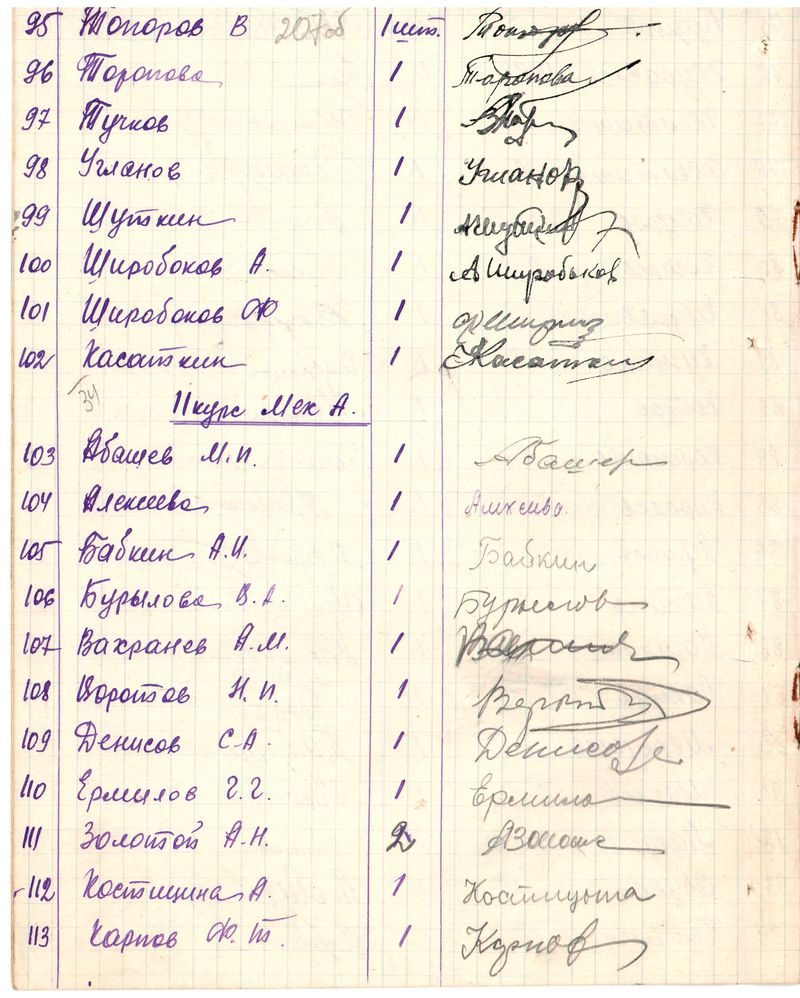 95 Топоров В 207об 1 шт. Топоров
96 Торопова 1 Торопова
97 Тучков 1
98 Угланов 1 Угланов
99 Шуткин 1
100 Широбоков А. 1 А Широбоков
101 Широбоков Ф 1
102 Касаткин 1 Касаткин
34 II курс Мех А.
103 Абашев М.И. 1 Абашев
104 Алексеева 1 Алексеева
105 Бабкин А.И. 1 Бабкин
106 Бурылова В.А. 1 Бурылов
107 Вахранев А.М. 1
108 Воротов Н.И. 1
109 Денисов С.А. 1 Денисов
110 Ермилов Г.Г. 1 Ермилов
111 Золотой А.Н. 2
112 Костицина А. 1 Костицына
113 Карпов Ф.Т. 1 Карпов